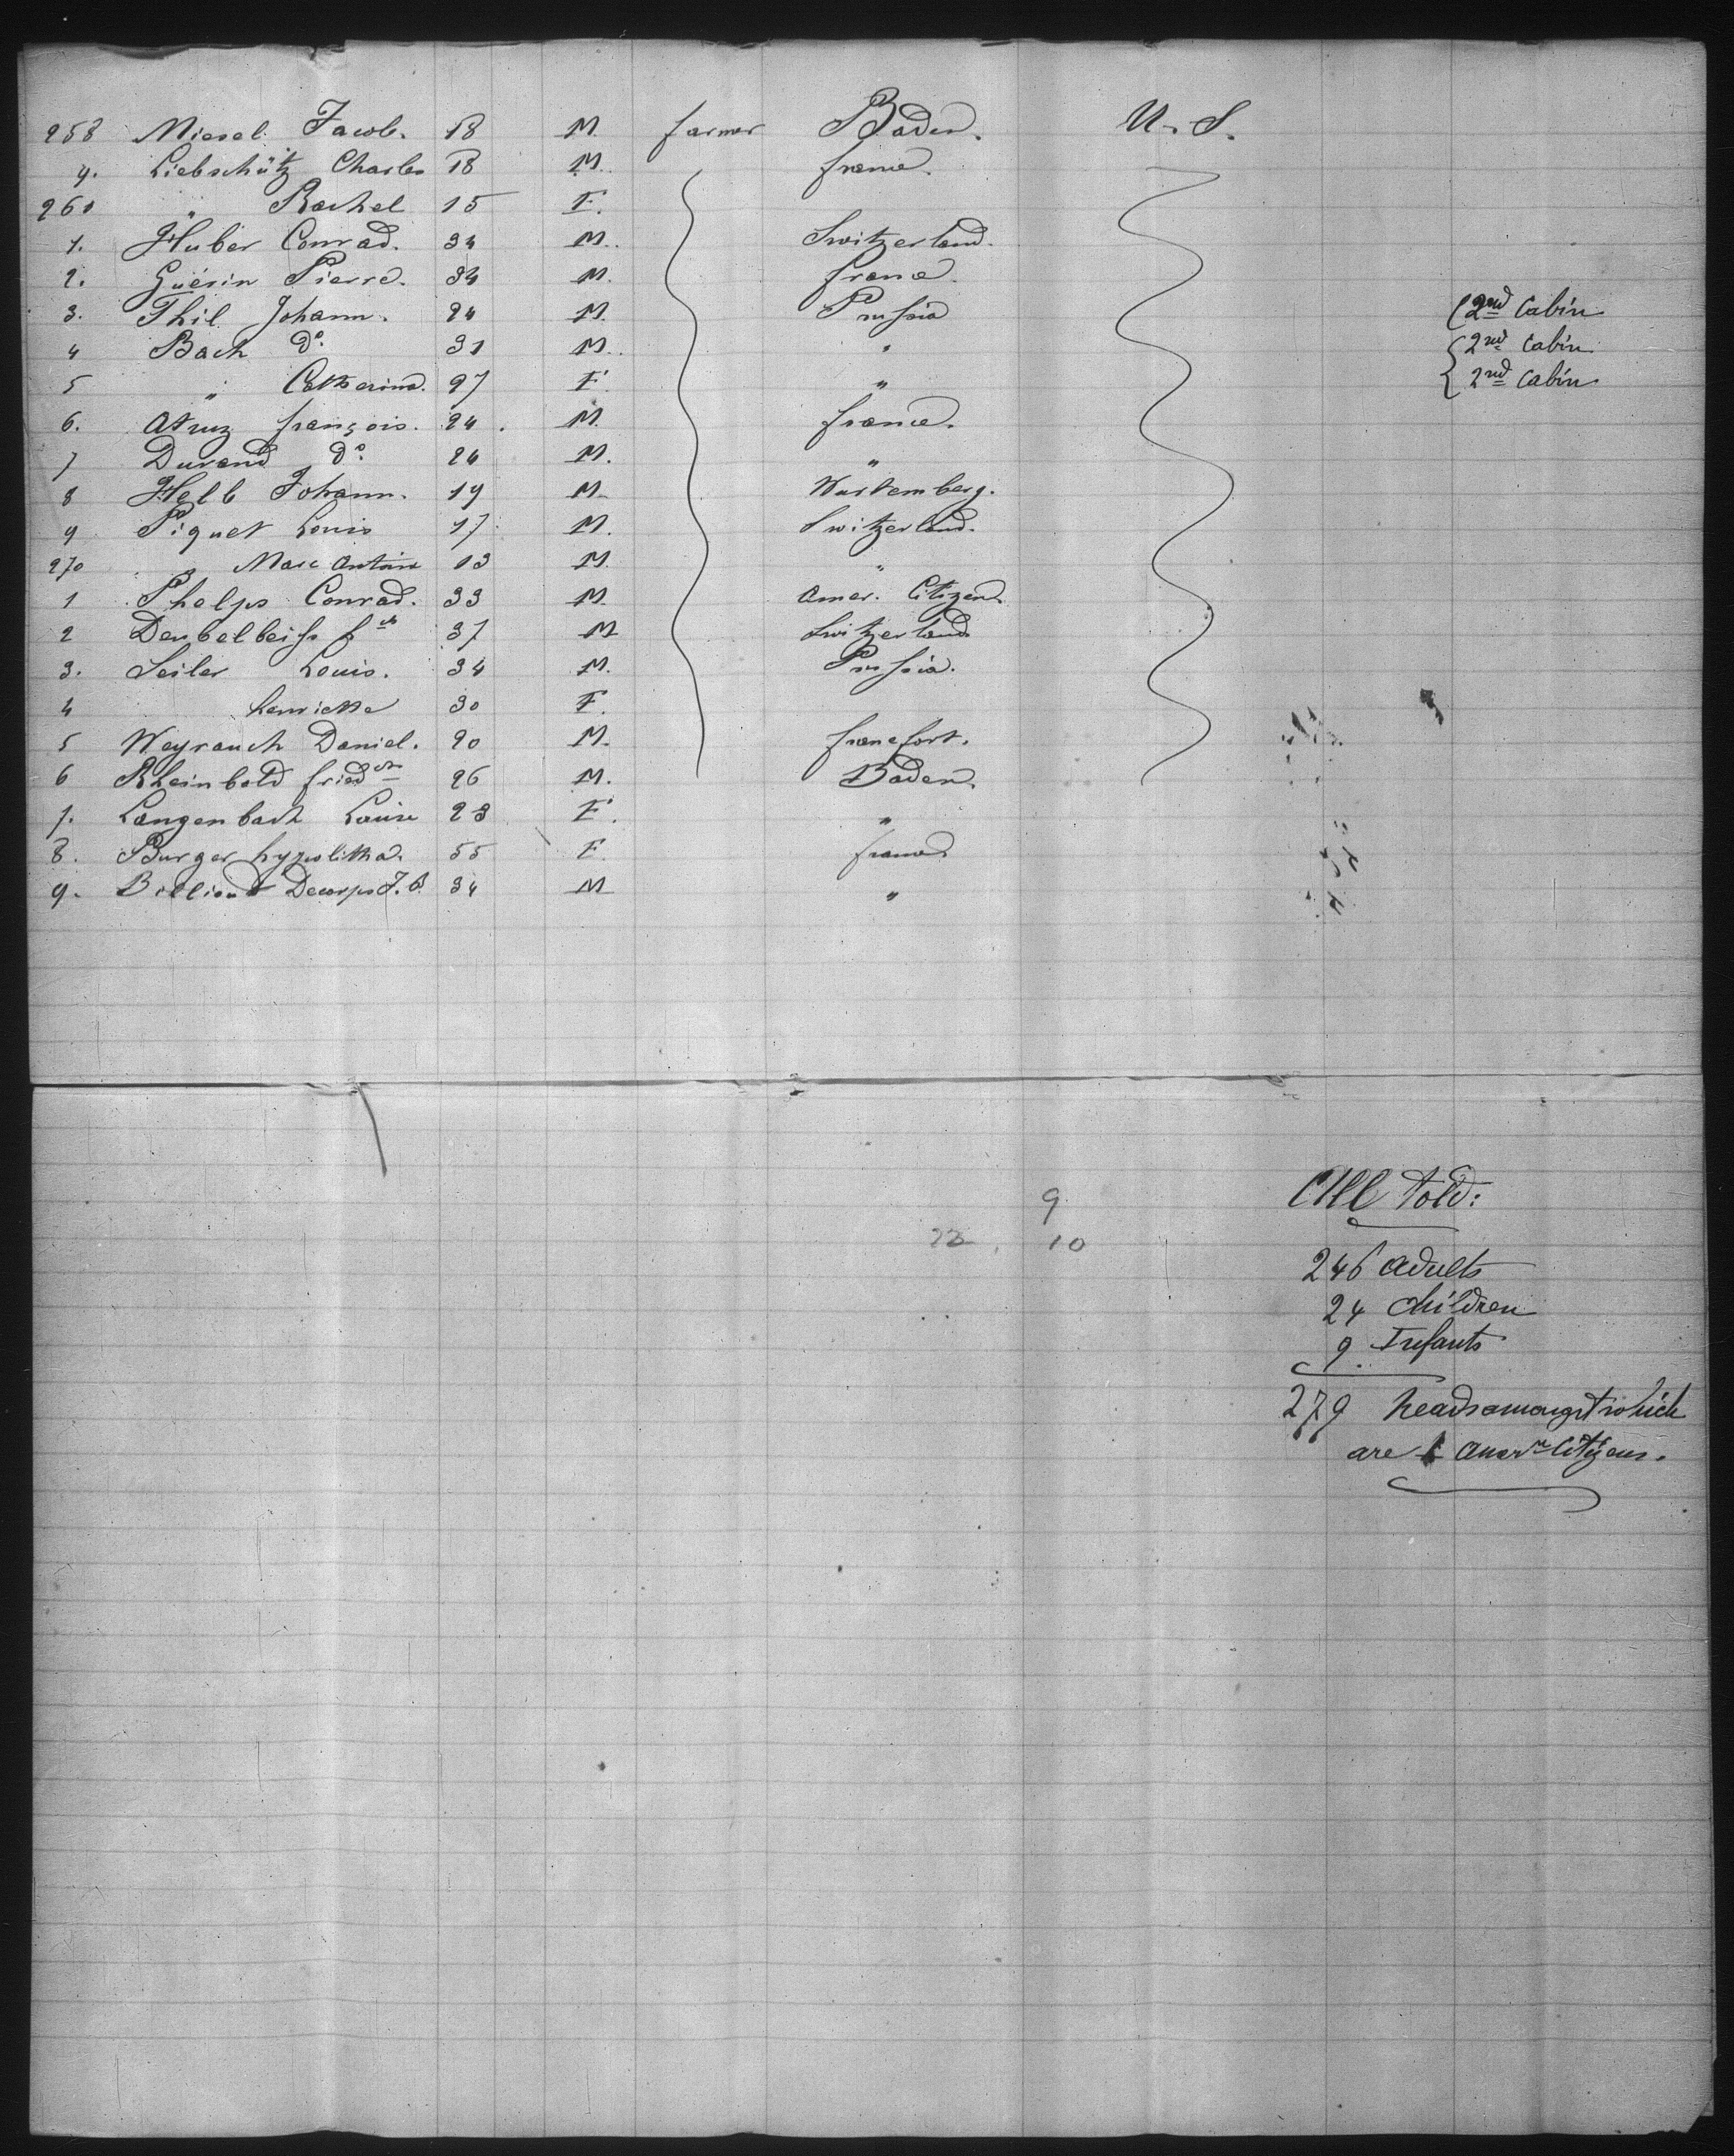 258 Miesel Jacob. 18 M. farmer Baden. U. S.
9. Liebschütz Charles 18 M. france.
260 " Rachel 15 F.
1. Huber Conrad. 34 M. Switzerland.
2. Guérin Pierre. 34 M. france.
3. Thil Johann. 24 M. Prussia (2nd Cabin
4 Bach Do. 31 M. " {2nd Cabin
5 " Catherina. 27 F. " 2nd Cabin
6. françois. 24. M. france.
7 Durand Do. 24 M. "
8 Helb Johann. 19 M. Wurtemberg.
9 Piquet Louis 17. M. Switzerland.
270 " Marc Antoine 13 M. "
1 Phelps Conrad. 33 M. Amer. Citizen.
2 Deubelbeiss 37 M Switzerland
3. Seiler Louis. 34 M. Prussia.
4 henriette 30 F.
5 Weyrauch Daniel. 20 M. francfort.
6 Rheinbold friedch 26 M. Baden.
7. Langenbach Louise 23 F. "
8. Burger hyppolitha. 55 F. france
9. Decorps J. B. 34 M "
All told:
9
22. 10
246 adults
24 children
9 Infants
279 heads amongst which
are Amern Citizens.